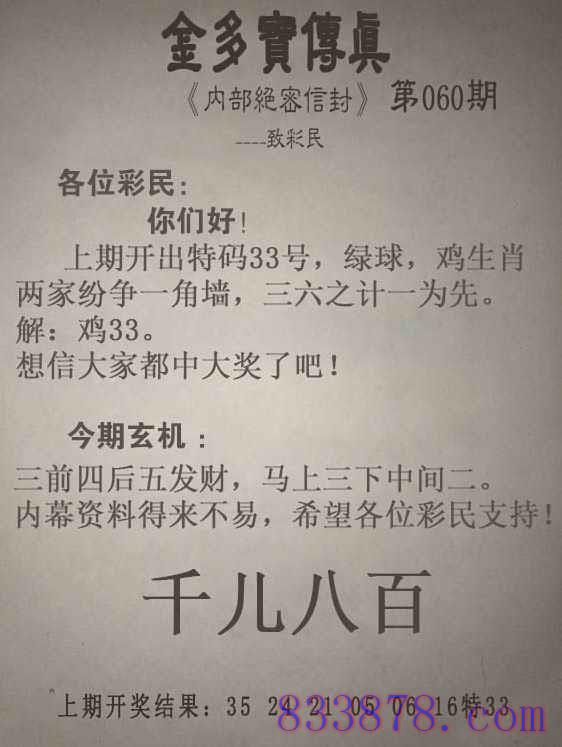 金多寶傳真
《内部絕密信封》第060期
----致彩民
各位彩民:
你们好!
上期开出特码33号，绿球，鸡生肖
两家纷争一角墙，三六之计一为先。
解：鸡33。
想信大家都中大奖了吧！
今期玄机：
三前四后五发财，马上三下中间二。
内幕资料得来不易，希望各位彩民支持！
千儿八百
上期开奖结果：35 24 21 05 06 16特33
833878.com